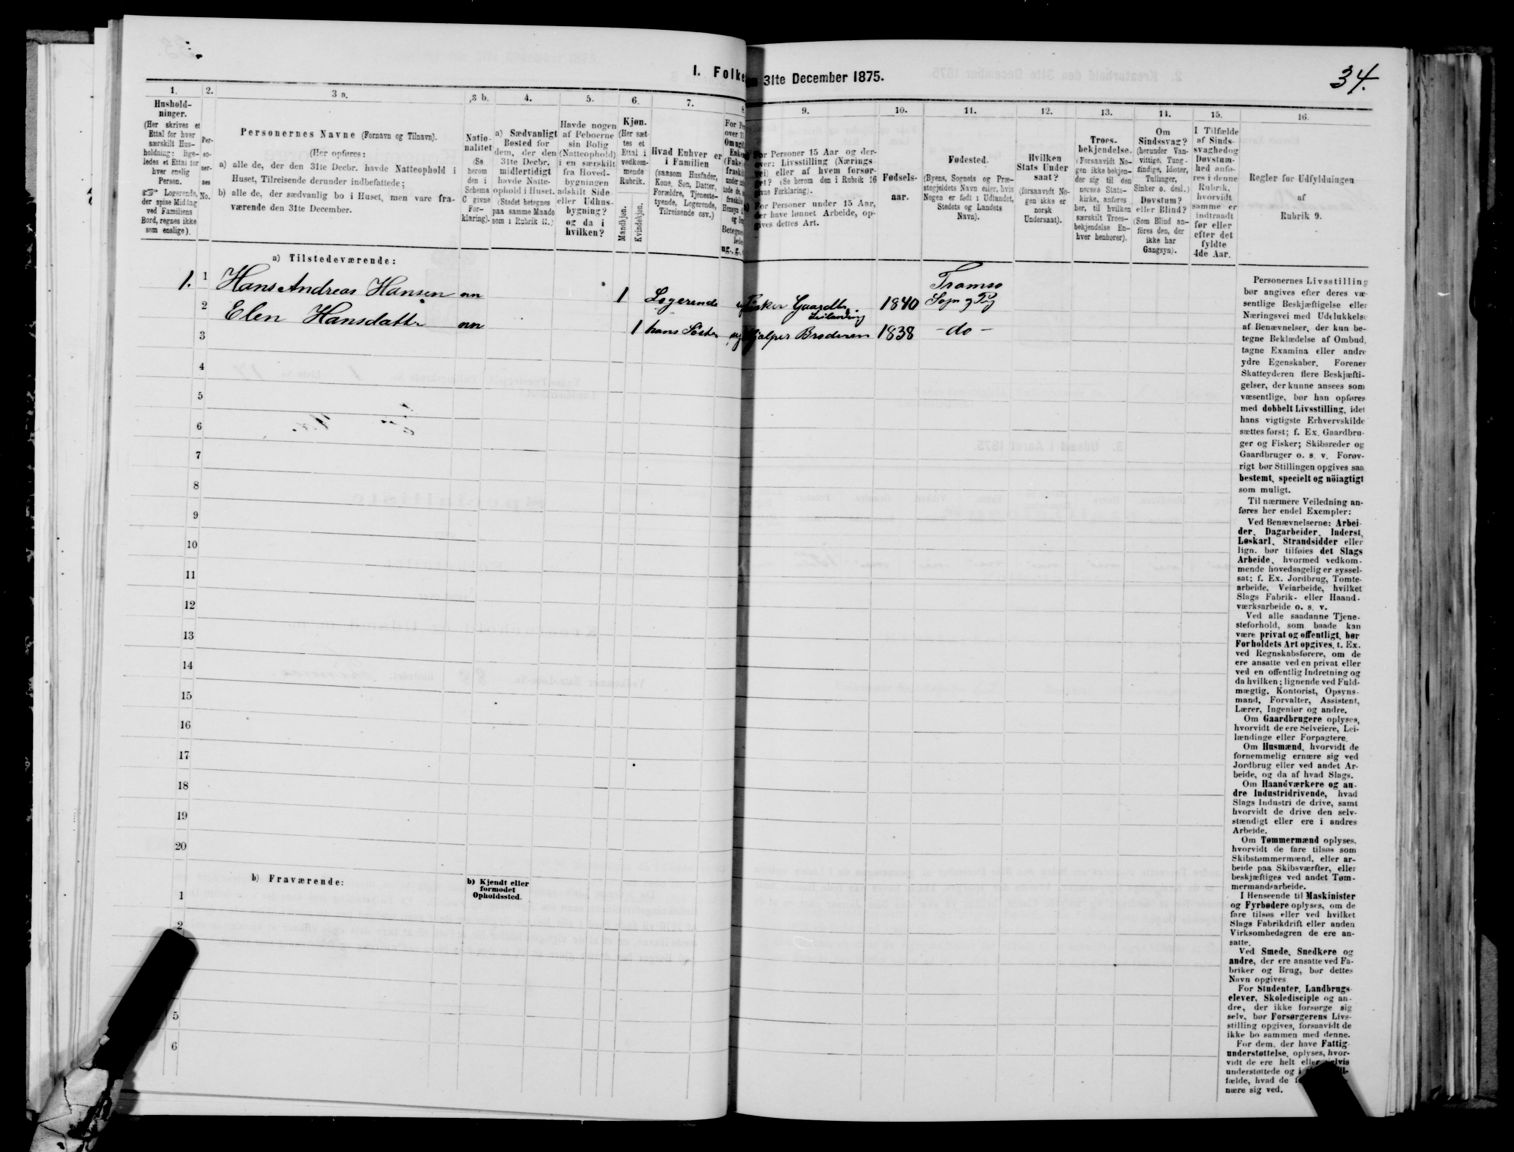 34.
I. Folke
31te December 1875.
1. 2. 3 a. 3 b. 4. 5. 6. 7. 9. 10. 11. 12. 13. 14. 15. 16.
Hushold-
ninger.
(Her skrives et
Ettal for hver
særskilt Hus-
holdning; lige-
ledes et Ettal for
hver enslig
Person.
Logerende,
der spise Middag
ved Familiens
Bord, regnes ikke
som enslige).
Per-
so-
ner-
nes
No.
Personernes Navne (Fornavn og Tilnavn).
(Her opføres:
a) alle de, der den 31te Decbr. havde Natteophold i
Huset, Tilreisende derunder indbefattede;
b) alle de, der sædvanlig bo i Huset, men vare fra-
værende den 31te December.
Natio-
nalitet
(Se
herom
den i
Schema
C givne
For-
klaring).
a) Sædvanligt
Bosted for
dem, der den
31te Decbr.
midlertidigt
havde Natte-
ophold i Huset.
(Stedet betegnes
paa samme Maade
som i Rubrik 11.)
Havde nogen
af Peboerne
sin Bolig
(Natteophold)
i en særskilt
fra Hoved-
bygningen
adskilt Side
eller Udhus-
bygning?
og da i
hvilken?
Kjøn.
(Her sæt-
tes et
Ettal i
vedkom-
mende
Rubrik.
Mandkjøn.
Kvindekjøn.
Hvad Enhver er
i Familien
(saasom Husfader,
Kone, Søn, Datter,
Forældre, Tjeneste-
tyende, Logerende,
Tilreisende osv.)
For Personer 15 Aar og der-
over: Livsstilling (Nærings-
vei) eller af hvem forsør-
get? (Se herom den i Rubrik 16
givne Forklaring).
For Personer under 15 Aar,
der have lønnet Arbeide, op-
gives dettes Art.
Fødsels-
aar.
Fødested.
(Byens, Sognets og Præ-
stegjeldets Navn eller, hvis
Nogen er født i Udlandet,
Stedets og Landets
Navn).
Hvilken
Stats Under
saat?
(forsaavidt No-
gen ikke er
norsk
Undersaat).
Troes-
bekjendelse.
(Forsaavidt No-
gen ikke bekjen-
der sig til den
norske Stats-
kirke, anføres
her, til hvilken
særskilt Troes-
bekjendelse En-
hver henhører).
Om
Sindssvag?
(herunder Van-
vittige, Tung-
sindige, Idioter,
Tullinger,
Sinker o. desl.)
Døvstum?
eller Blind?
(Som Blind an-
føres den, der
ikke har
Gangsyn).
I Tilfælde
af Sinds-
svaghed og
Døvstum-
hed anfø-
res i denne
Rubrik,
hvorvidt
samme er
indtraadt
før eller
efter det
fyldte
4de Aar.
Regler for Udfyldningen
af
Rubrik 9.
a) Tilstedeværende:
1. 1 Hans Andreas Hansen nn 1 Logerende Fisker Gaardbr. 1840 Tromsø
2 Elen Hansdatter nn 1 hans Søster hjelper Broderen 1838 - do -
3
4
5
6
7
8
9
10
11
12
13
14
15
16
17
18
19
20
b) Fraværende:
b) Kjendt eller
formodet
Opholdssted.
1
2
5
6
Personernes Livsstilling
bør angives efter deres væ-
sentlige Beskjæftigelse eller
Næringsvei med Udelukkelse
af Benævnelser, der kun be-
tegne Beklædelse af Ombud,
tagne Examina eller andre
ydre Egenskaber. Forener
Skatteyderen flere Beskjæfti-
gelser, der kunne ansees som
væsentlige, bør han opføres
med dobbelt Livsstilling, idet
hans vigtigste Erhvervskilde
sættes først; f. Ex. Gaardbru-
ger og Fisker; Skibsreder og
Gaardbruger o. s. v. Forøv-
rigt bør Stillingen opgives saa
bestemt, specielt og nöiagtigt
som muligt.
Til nærmere Veiledning an-
føres her endel Exempler:
Ved Benævnelserne: Arbei-
der, Dagarbeider, Inderst,
Løskarl, Strandsidder eller
lign. bør tilføies det Slags
Arbeide, hvormed vedkom-
mende hovedsagelig er syssel-
sat; f. Ex. Jordbrug, Tomte-
arbeide, Veiarbeide, hvilket
Slags Fabrik- eller Haand-
værksarbeide o. s. v.
Ved alle saadanne Tjene-
steforhold, som baade kan
være privat og offentligt, bør
Forholdets Art opgives, t. Ex.
ved Regnskabsførere, om de
ere ansatte ved en privat eller
ved en offentlig Indretning og
da hvilken; lignende ved Fuld-
mægtig, Kontorist, Opsyns-
mand, Forvalter, Assistent,
Lærer, Ingeniør og andre.
Om Gaardbrugere oplyses,
hvorvidt de ere Selveiere, Lei-
lændinge eller Forpagtere.
Om Husmænd, hvorvidt de
fornemmelig ernære sig ved
Jordbrug eller ved andet Ar-
beide, og da af hvad Slags.
Om Haandværkere og an-
dre Industridrivende, hvad
Slags Industri de drive, samt
hvorvidt de drive den selv-
stændigt eller ere i andres
Arbeide.
Om Tømmermænd oplyses,
hvorvidt de fare tilsøs som
Skibstømmermænd, eller ar-
beide paa Skibsværfter, eller
beskjæftiges ved andet Tøm-
mermandsarbeide.
I Henseende til Maskinister
og Fyrbødere oplyses, om de
fare tilsøs eller ved hvilket
Slags Fabrikdrift eller anden
Virksomhedsgren de ere an-
satte.
Ved Smede, Snedkere og
andre, der ere ansatte ved Fa-
briker og Brug, bør dettes
Navn opgives
For Studenter, Landbrugs-
elever, Skoledisciple og an-
dre, der ikke forsørge sig
selv, bør Forsørgerens Livs-
stilling opgives, forsaavidt de
ikke bo sammen med denne.
For dem, der have Fattig-
understøttelse, oplyses, hvor-
vidt de ere helt eller delvis
understøttede og i
fælde, hvad de
nære sig ved.